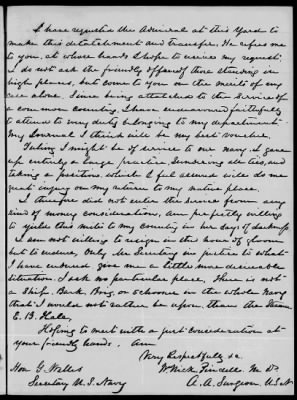 I have requested the Admiral at this Yard to
make this detachment and transfer. He refers me
to you, at whose hands I hope to receive my request.
I do not ask the friendly of those standing in
high places, but come to you on the merits of my
case alone. Since being attached to the Service of
a common country, I have endeavored faithfully
to attend to every duty belonging to my department
My Journal I think will be my best voucher.
Feeling I might be of service to our navy, I gave
up entirely a large practice, sundering all ties, and
taking a position, which I feel assured will do me
great injury on my return to my native place.
I therefore did not enter the service from any
kind of money considerations, am perfectly willing
to yield this mite to my country in her days of darkness
I am not willing to resign in this hour of gloom
but to endure, Only Mr Secretary in justice to what
I have endured, give me a little more desirable
situation. I ask no particular place, There is not
a Ship, Bark, Brig, or Schooner in the whole Navy
that I would not rather be upon, than the Steam
E. B. Hale,
Hoping to meet with a just consideration at
your friendly hands. I am
Very Respectfully &c.
Hon G. Welles
W Nick Pindell. M. D.
Secretary U. S. Navy
A. A. Surgeon. U.S.N